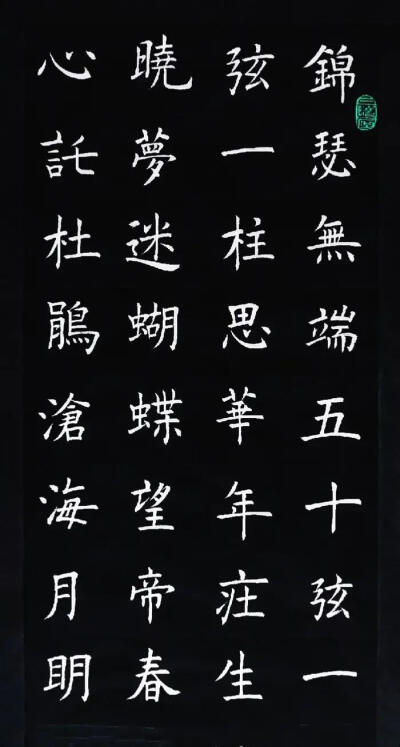 錦瑟無端五十弦一
弦一柱思華年疘生
曉夢迷蝴蝶望帝春
心託杜鵑滄海月明